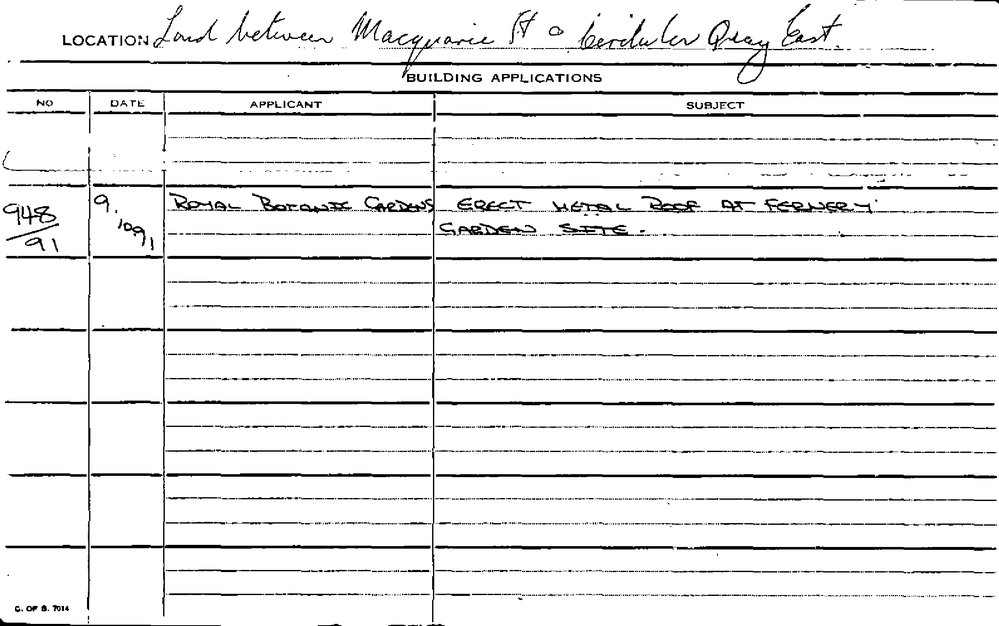 LOCATION Land between Macquarie St & Circular Quay East.
BUILDING APPLICATIONS
NO DATE APPLICANT SUBJECT
948/91 9.10.91 ROYAL BOTANIC GARDENS ERECT METAL ROOF AT FERNERY
GARDEN SITE.
C. OF S. 7014